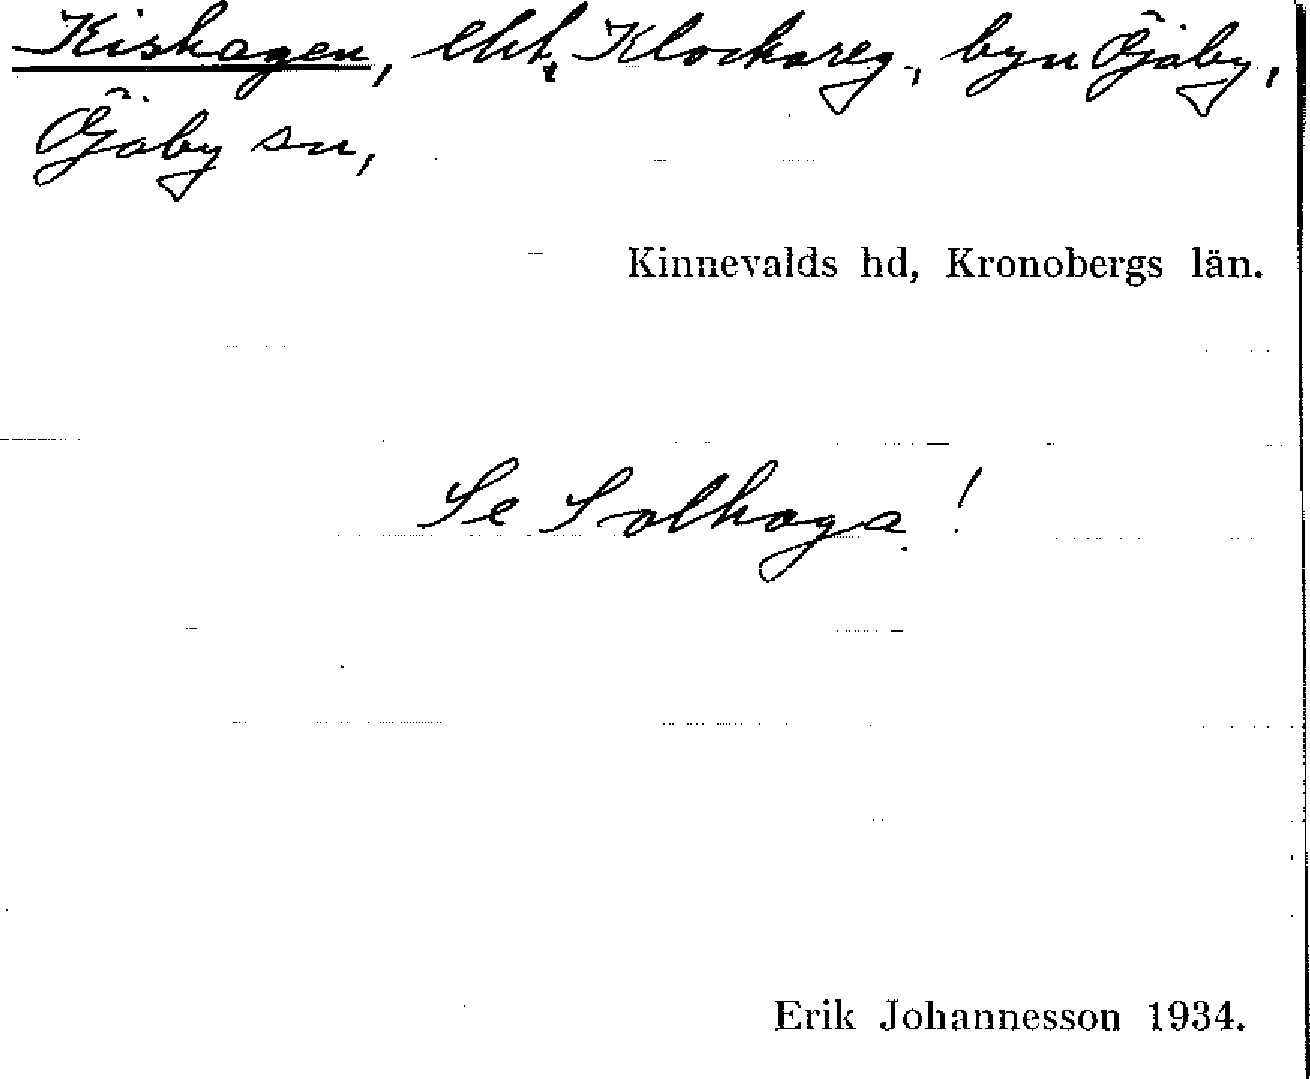 Kishagen, lht, Klockareg., byn Öjaby,
Öjaby sn,
Kinnevalds hd, Kronobergs län.
Se Solhaga!
Erik Johannesson 1934.